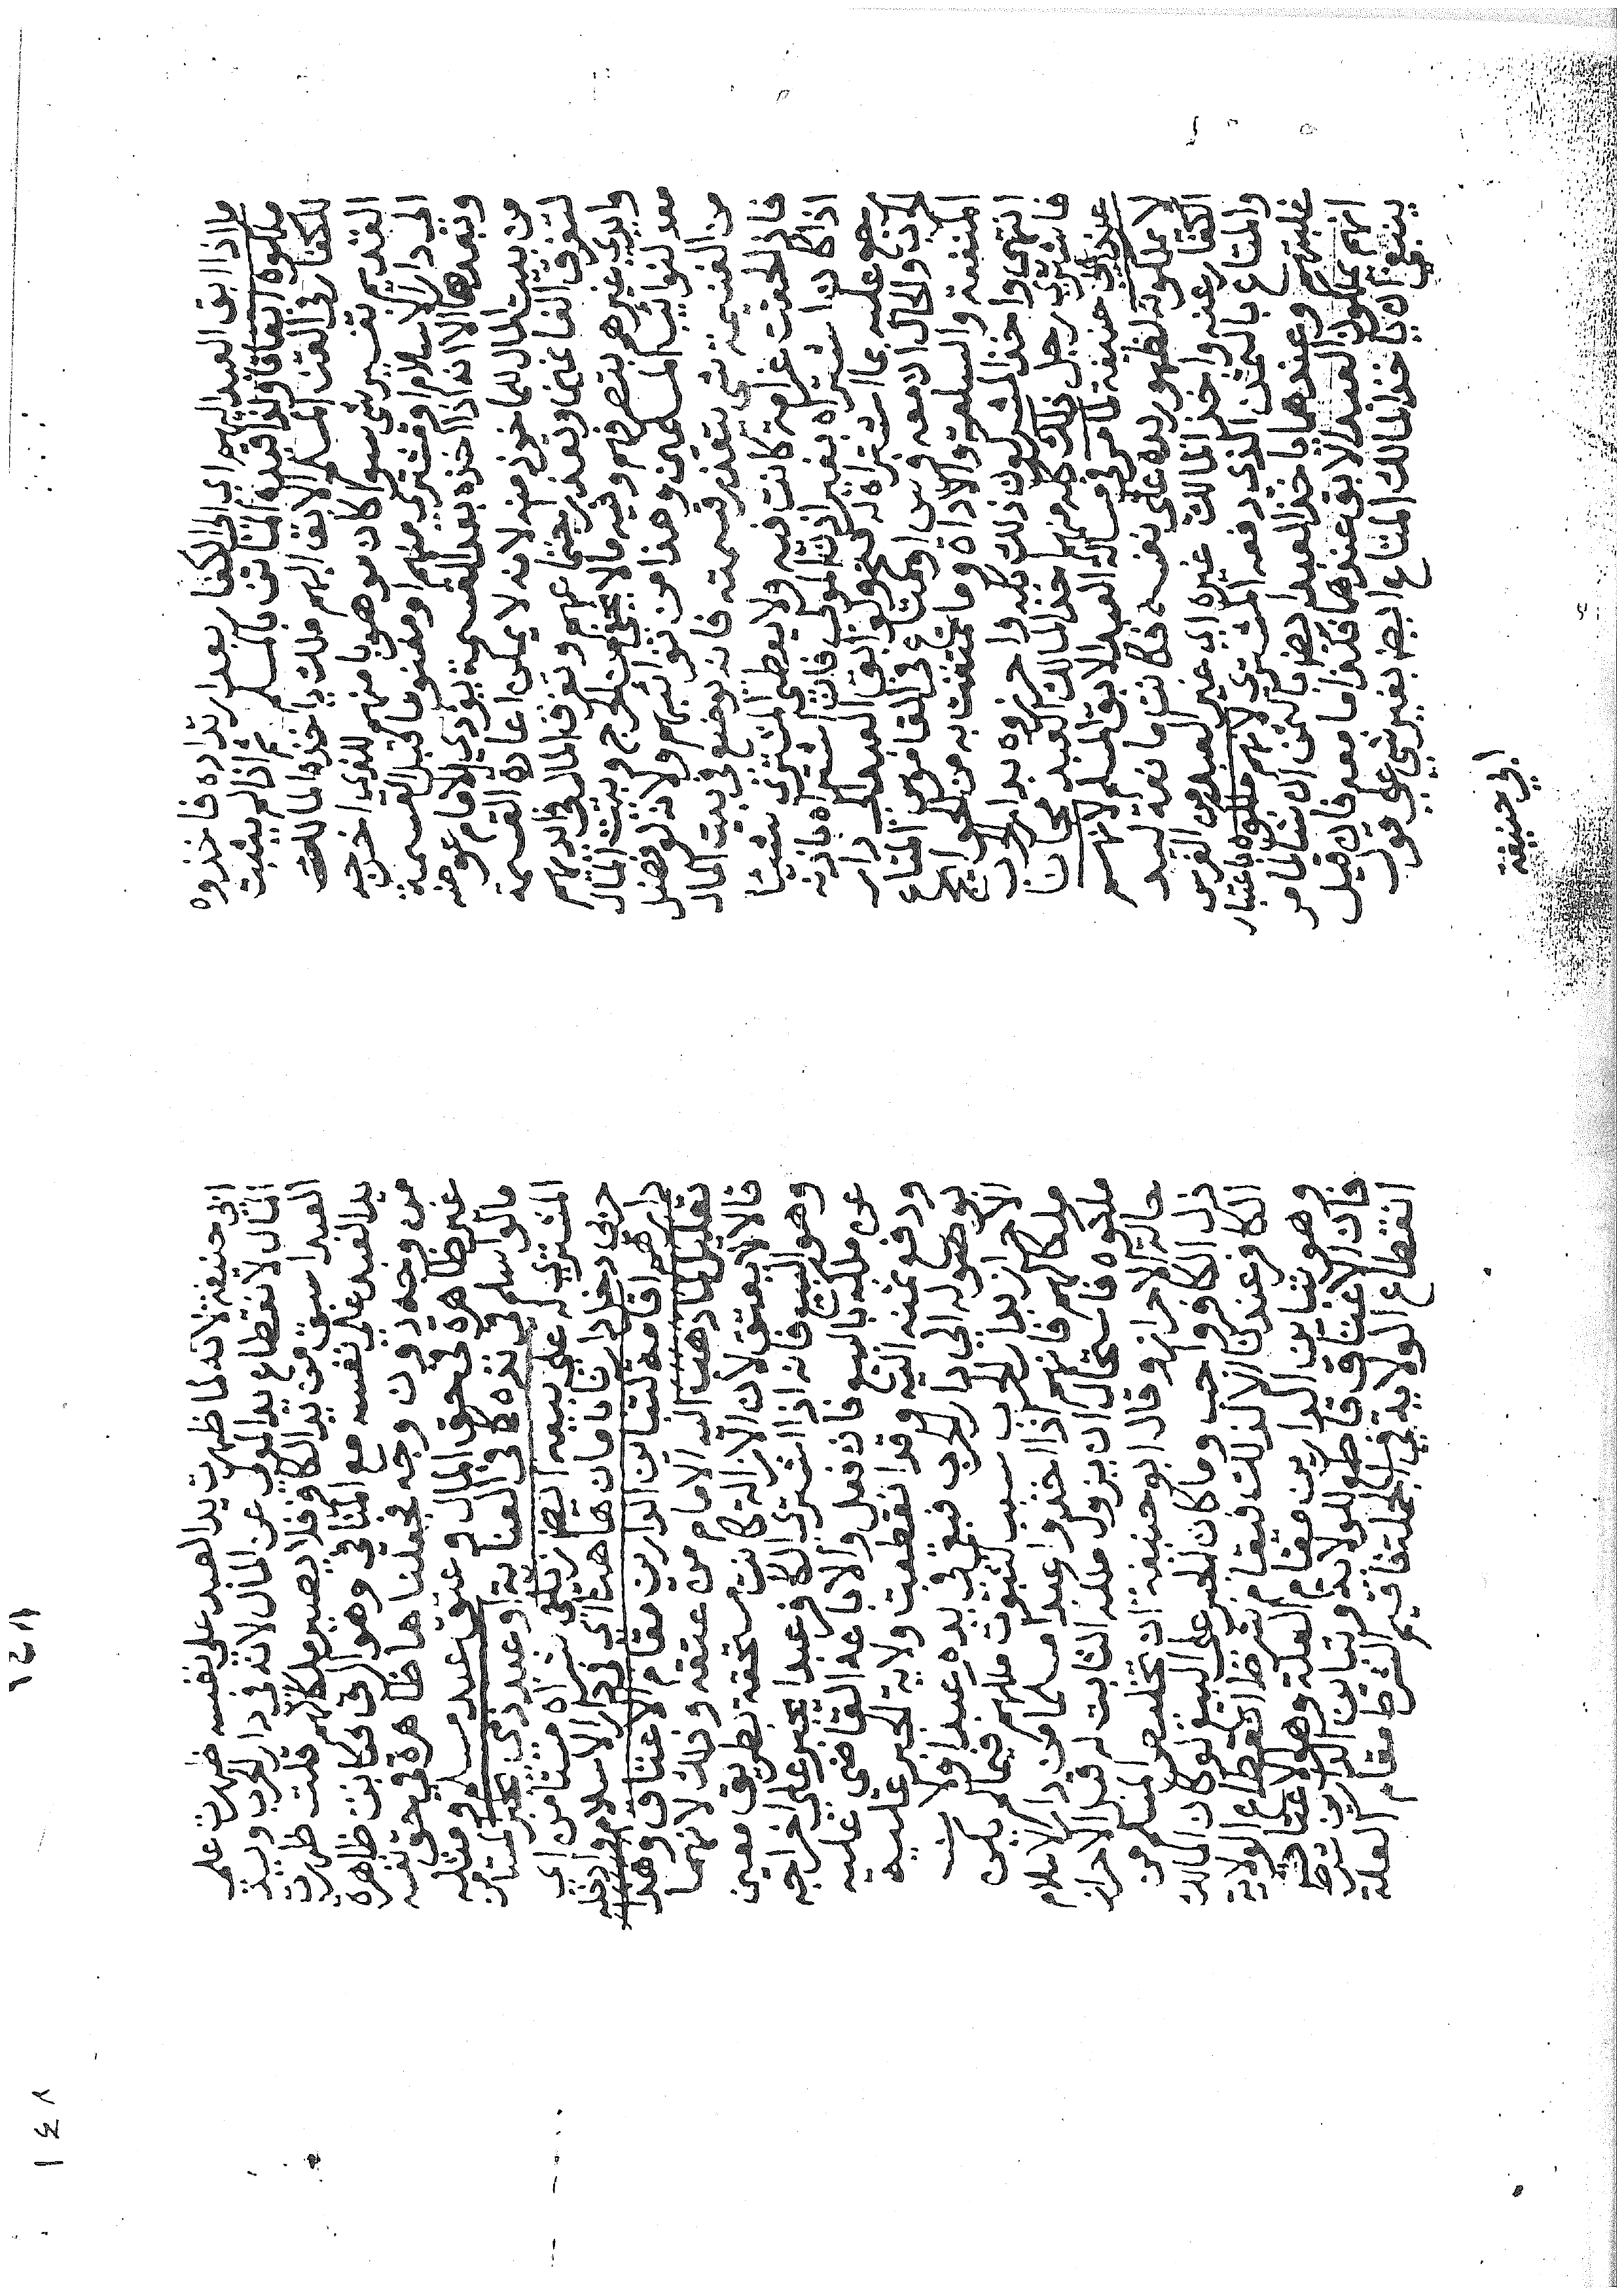 واذا ابق العبد اليهم اي الى الكفار بعد ارتداده فاخذوه
ملكوه اتفاقا ولذا قيده الشارح بالمسلم ثم اذا لم يثبت
للكفار في القن المسلم الابق اليهم ملك ياخذه المالك
القديم بغير شئ سوا كان موهوبا منهم للذي اخرجه
الى دار الاسلام او مشترى منهم او مغنوما قبل القسمة
وبعدها الا انه اذا اخذه بعد القسمة يؤدي الامام عوضه
من بيت المال للماخوذ منه لانه لا يمكن اعادة القسمة
لتفرق الغانمين وتعذر اجتماعهم وتفرق المال في ايديهم
وايدي غيرهم بتصرفهم وفيه ما لا يخفى من الحرج وبيت المال
معد لنوائب المسلمين وهذا من نوائبهم ولانه لو فضل
من الغنيمة شئ يتعذر قسمته فانه يوضع في بيت المال
فاذا لحقت غرامة كانت فيه ولا يعطي المشتري شيئا
اذا كان اشتراه بغير اذن المولى فان اشتراه باذنه
رجع عليه بما اشتراه له فتح ولو ابق العبد الى دار
الحرب والحال ان معه فرس او متاع في القاموس المتاع
المنفعة والسلعة والاداة وما تمتعت به من الحوائج
انتهى واخذ المشركون ذلك كله واحرزوه بدار الحرب
فاشترى رجل ذلك كله منهم اخذ المالك العبد مجانا
عند ابي حنيفة لما مر في مسالة العبد الابق المسلم لانهم
لا يملكونه لظهور يده على نفسه فكانت مانعة ليد
الكفار عنه واخذ المالك غيره اي غير العبد من الفرس
والمتاع بالثمن الذي دفعه المشتري لانهم ملكوه باعتبار
غلبتهم وعندهما ياخذ العبد ايضا بالثمن ان شا لما مر
انهم يملكون العبد الابق عندهما فكذا ما معه فان قيل
ينبغي ان ياخذ المالك المتاع ايضا بغير شئ على قول
ابي حنيفة
ابي حنيفة لانه لما ظهرت يد العبد على نفسه ظهرت على
المال لانقطاع يد المولى عن المال لانه في دار الحرب ويد
العبد اسبق من يد الكافر فلا يصير ملكا لهم قلت ظهرت
يد العبد على نفسه مع المنافي وهو الرق فكانت ظاهرة
من وجه دون وجه فجعلناها ظاهرة في حق نفسه
غير ظاهرة في حق المال وعتق عبد مسلم ومثله
ما لو اسلم في يده كما في العناية او عبد ذمي يجبر المستامن
المشتري له على بيعه ايضا زيلعي شراه مستامن اي
حربي دخل دارنا بامان هاهنا اي في دار الاسلام وادخله
دارهم اقامة لتباين الدارين مقام الاعتاق وهذا
تعليل لما ذهب اليه الامام من عتقه وذلك لانهما
قالا لا يعتق لان الازالة كانت مستحقة بطريق معين
وهو البيع فانه اذا اشترى الكافر عبدا يجبر على اخراجه
عن ملكه بالبيع فان فعل والا باعه القاضي عليه
ودفع ثمنه اليه وقد انقطعت ولاية الجبر عليه
بوصوله الى دار الحرب فبقي في يده عبدا ولان
الاحراز بدار الحرب سبب لثبوت ملكهم فيما لم يكن
ملكا لهم فانهم اذا اخذوا عبدا مسلما من دار الاسلام
ملكوه فاستحال ان يزول ملكه الثابت له قبل الاحراز
حالة الاحراز وقال ابو حنيفة ان تخليص المسلم من
ذل الكافر واجب وما كان الجبر على البيع لو كان المالك
الكافر عندنا الا لذلك فيقام شرط انقطاع الولاية
وهو تباين الدارين مقام العلة وهو الاعتاق
فان الاعتاق قاطع للولاية وتباين الدارين شرط
انقطاع الولاية في الجملة فاقيم الشرط مقام العلة
١٤٨